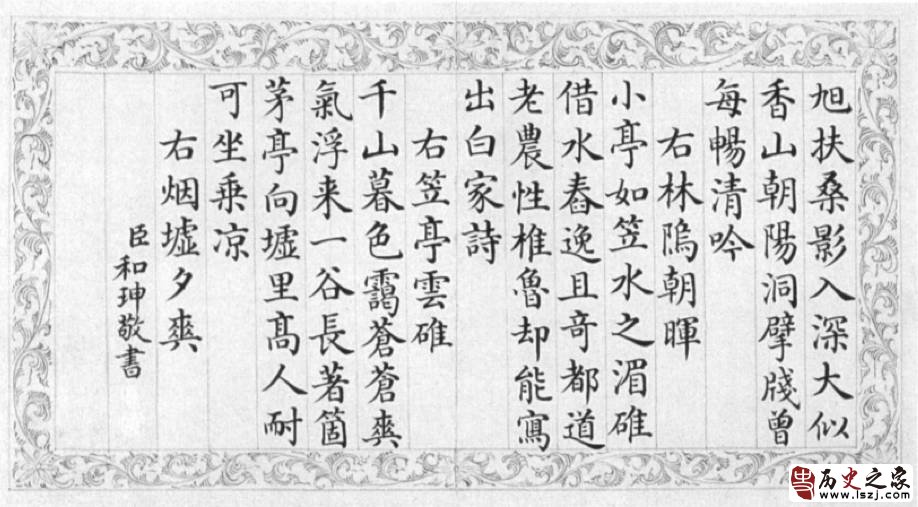 旭扶桑影入深大似
香山朝陽洞擘牋曾
每暢清吟
右林隖朝暉
小亭如笠水之湄碓
借水舂逸且奇都道
老農性椎魯却能寫
出白家詩
右笠亭雲碓
千山暮色靄蒼蒼爽
氣浮来一谷長著箇
茅亭向墟里髙人耐
可坐乗凉
右烟墟夕爽
臣和珅敬書
历史之家
www.lszj.com